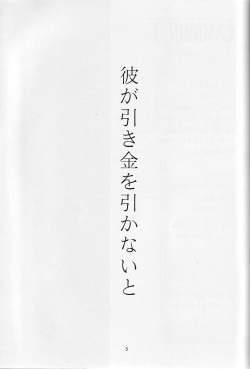 彼が引き金を引かないと
5